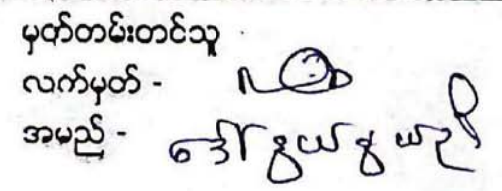 မှတ်တမ်းတင်သူ
လက်မှတ် -
အမည် - ဒေါ်နွယ်နွယ်